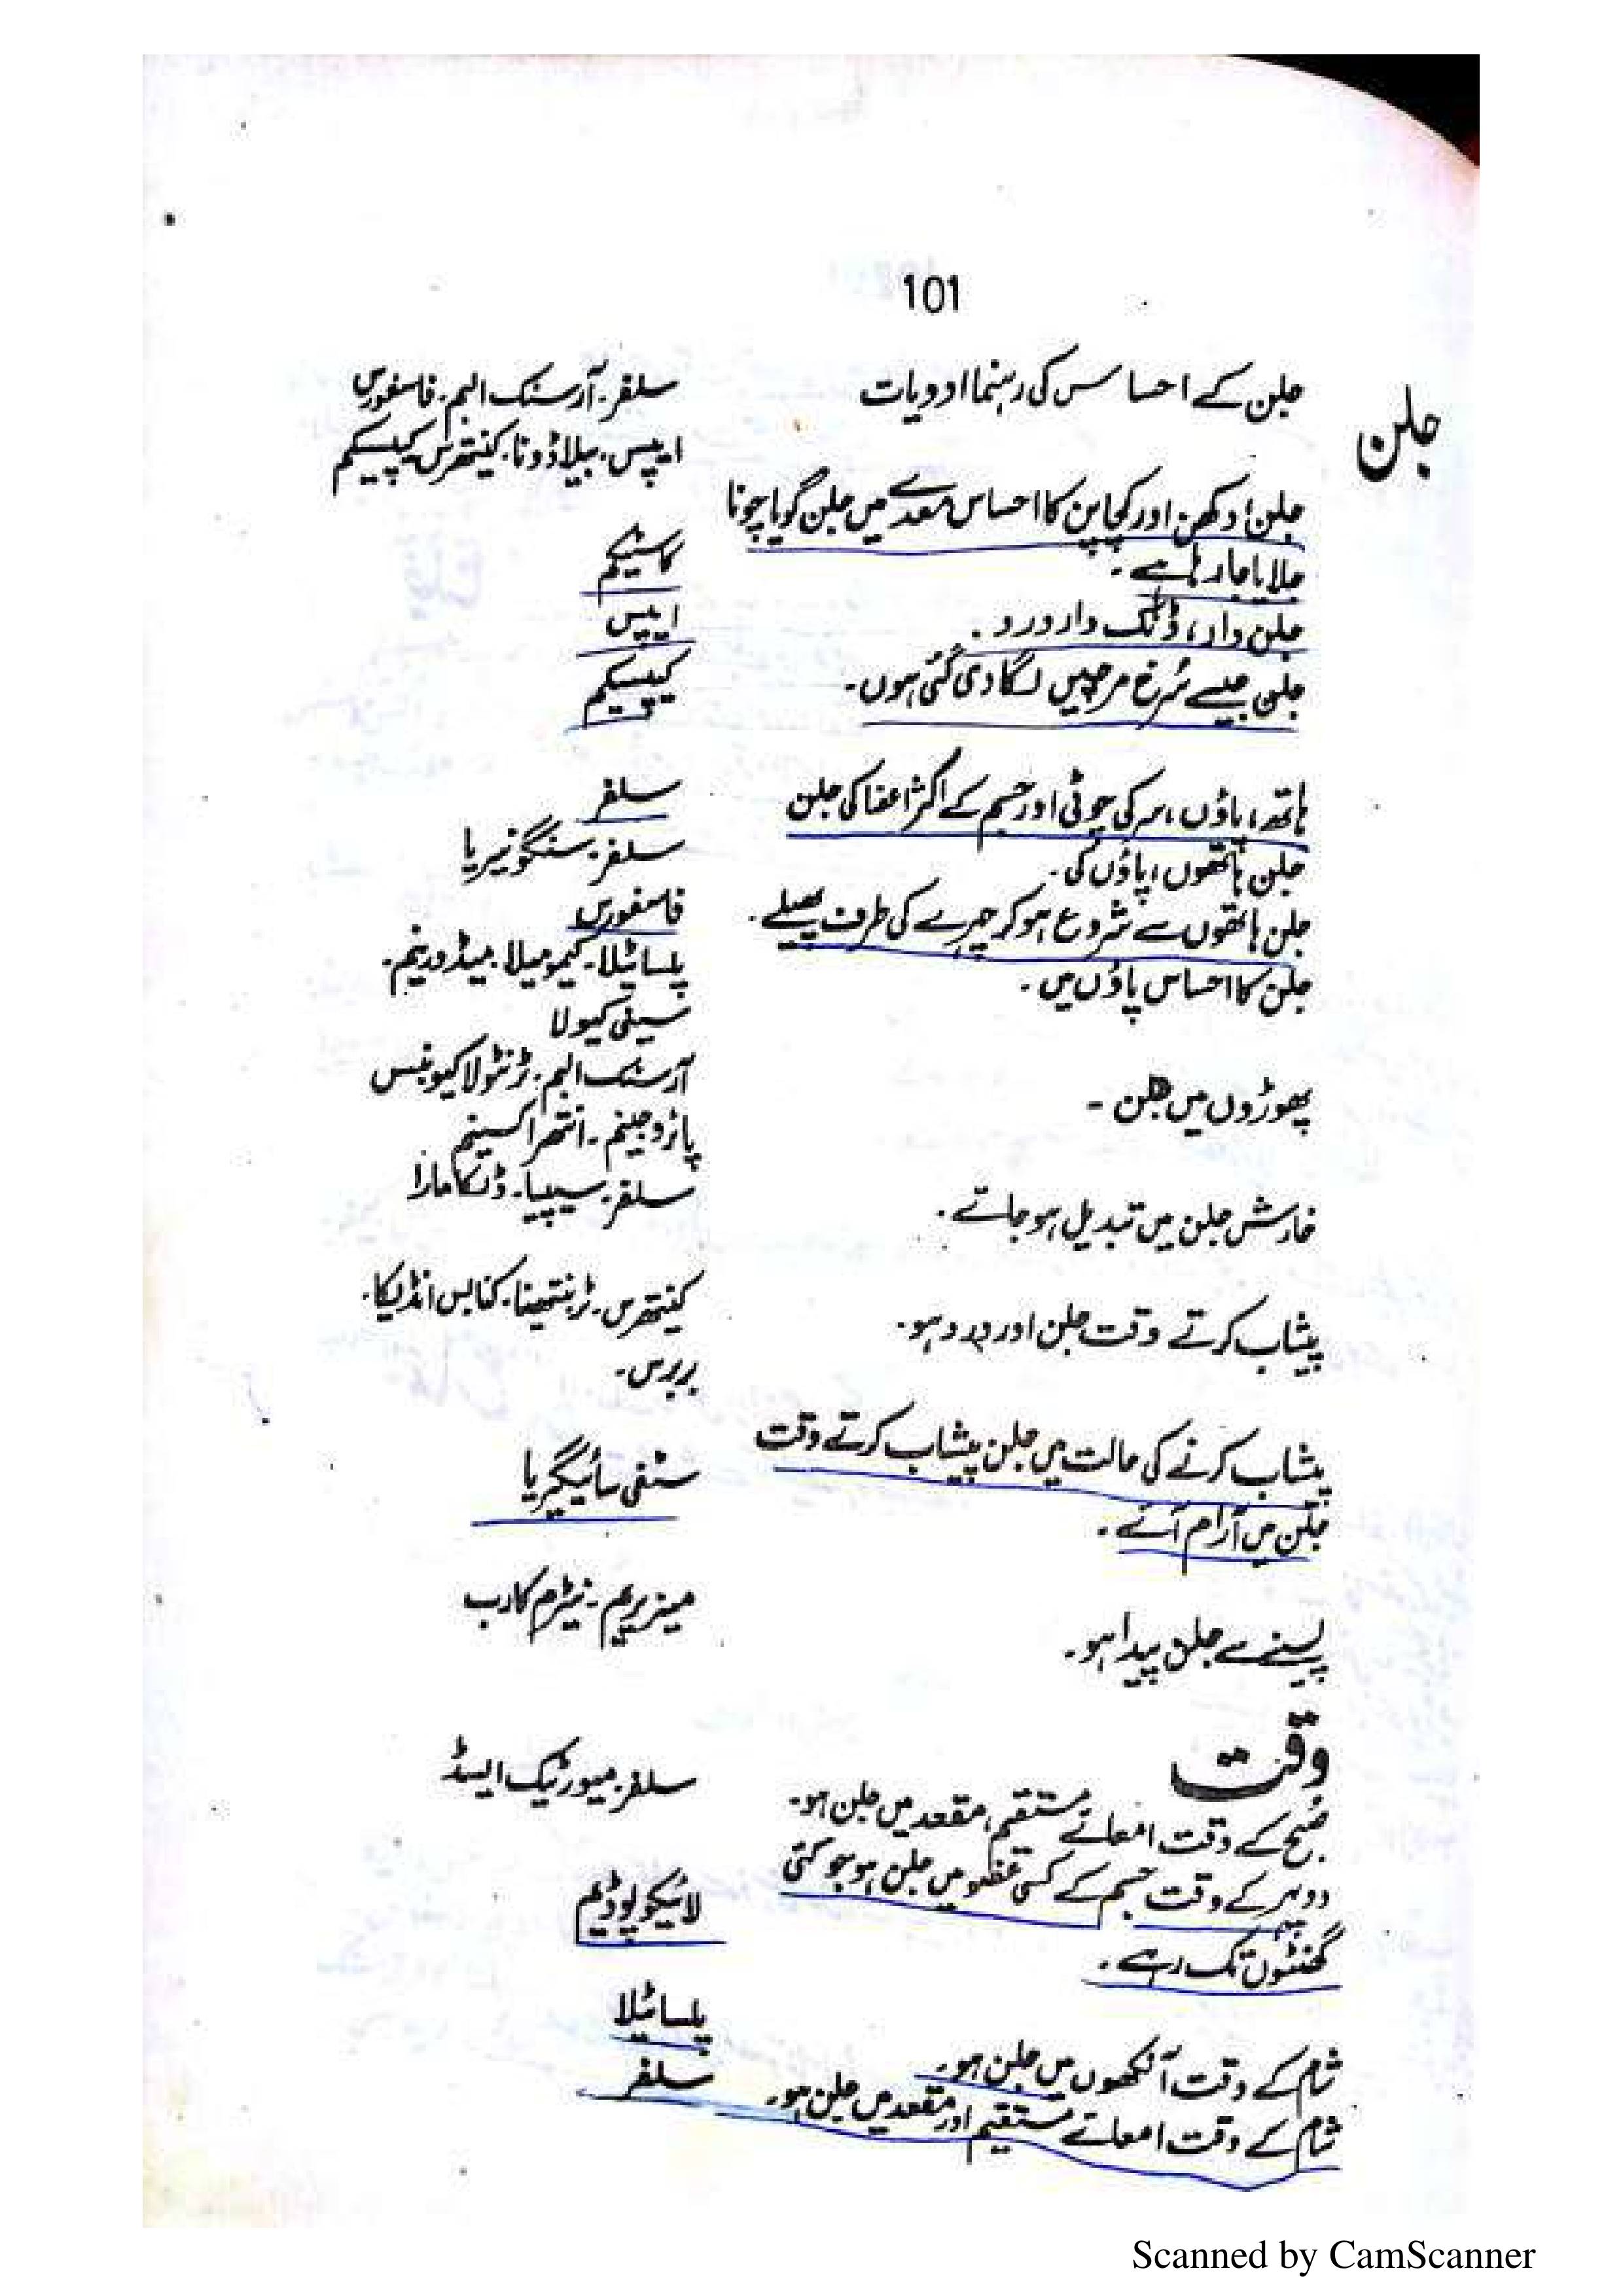 101
جلن
جلن کے احساس کی رہنما ادویات
سلفر۔ آرسنک البم۔ فاسفورس
ایپس۔ بیلاڈونا۔ کینتھرس کیپسیکم
جلن، دکھن، اور کچا پن کا احساس معدے میں جلن گویا چونا
جلایا جا رہا ہے۔
کاسٹیکم
جلن دار، ڈنگ دار درد۔
ایپس
جلن جیسے سُرخ مرچیں لگا دی گئی ہوں۔
کیپسیکم
ہاتھ، پاؤں، سر کی چوٹی اور جسم کے اکثر اعضا کی جلن
سلفر
جلن ہاتھوں، پاؤں کی۔
سلفر۔ سنگونیریا
جلن ہاتھوں سے شروع ہو کر چہرے کی طرف پھیلے۔
فاسفورس
جلن کا احساس پاؤں میں۔
پلساٹیلا۔ کیمومیلا۔ میڈورینم۔
سینی کیولا
پھوڑوں میں جلن۔
آرسنک البم۔ ٹرنٹولا کیوبنسس
پائروجینم۔ انتھراکسینم
خارش جلن میں تبدیل ہو جائے۔
سلفر۔ سیپیا۔ ڈلکامارا
پیشاب کرتے وقت جلن اور درد ہو۔
کینتھرس۔ ٹربنتھینا۔ کنابس انڈیکا۔
بربرس۔
پیشاب کرنے کی حالت میں جلن پیشاب کرتے وقت
جلن میں آرام آئے۔
سٹفی سائیگریا
پسینے سے جلن پیدا ہو۔
میزیریم۔ نیٹرم کارب
وقت
صُبح کے وقت امعائے مستقیم، مقعد میں جلن ہو۔
سلفر۔ میورٹیک ایسڈ
دوپہر کے وقت جسم کے کسی عضو میں جلن ہو جو کئی
گھنٹوں تک رہے۔
لائیکوپوڈیم
شام کے وقت آنکھوں میں جلن ہو۔
پلساٹیلا
شام کے وقت امعائے مستقیم اور مقعد میں جلن ہو۔
سلفر
Scanned by CamScanner